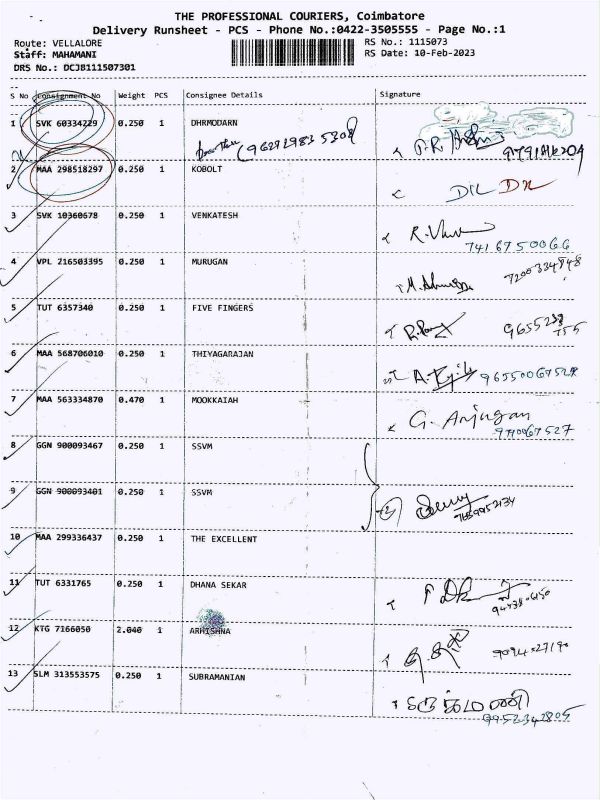 THE PROFESSIONAL COURIERS, Coimbatore
Delivery Runsheet - PCS - Phone No.:0422-3505555 - Page No.:1
Route: VELLALORE
RS No.: 1115073
Staff: MAHAMANI
RS Date: 10-Feb-2023
DRS No.: DCJB111507301
S No Consignment No Weight PCS Consignee Details Signature
1 SVK 60334229 0.250 1 DHRMODARN
2 MAA 298518297 0.250 1 KOBOLT
DIL DX
3 SVK 10360678 0.250 1 VENKATESH
7416750066
4 VPL 216503395 0.250 1 MURUGAN
7200334848
5 TUT 6357340 0.250 1 FIVE FINGERS
6 MAA 568706010 0.250 1 THIYAGARAJAN
7 MAA 563334870 0.470 1 MOOKKAIAH
G. Anjugan
8 GGN 900093467 0.250 1 SSVM
9 GGN 900093401 0.250 1 SSVM
10 MAA 299336437 0.250 1 THE EXCELLENT
11 TUT 6331765 0.250 1 DHANA SEKAR
12 KTG 7166050 2.040 1 ARHISHNA
13 SLM 313553575 0.250 1 SUBRAMANIAN
9952342805